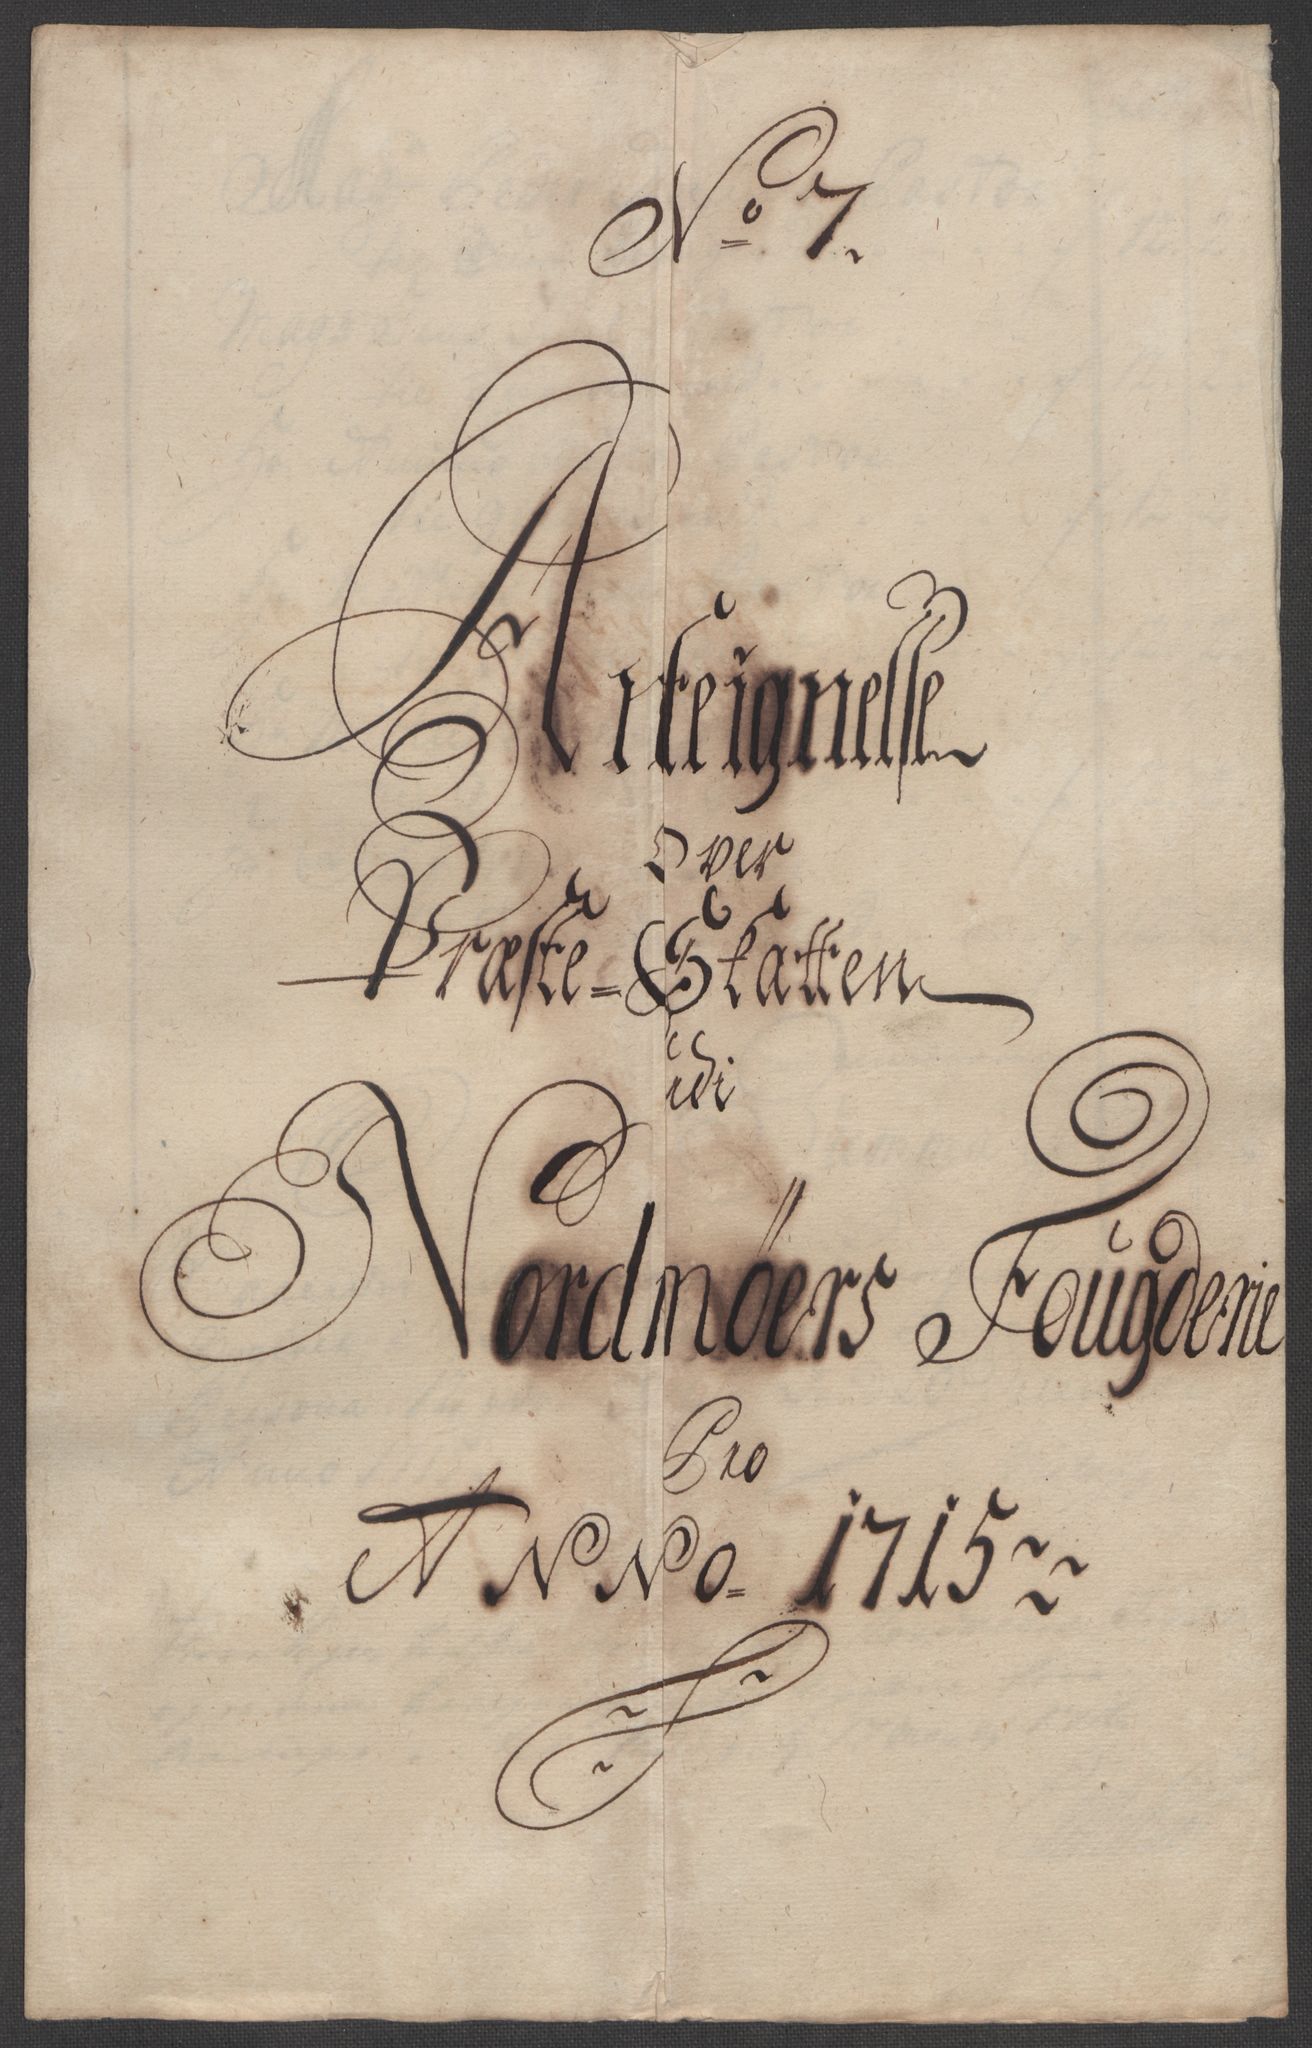 No 7.
Anteignelse
over
Præste-Skatten
udi
Nordmöers Fougderie
Pro
ANNo 1715